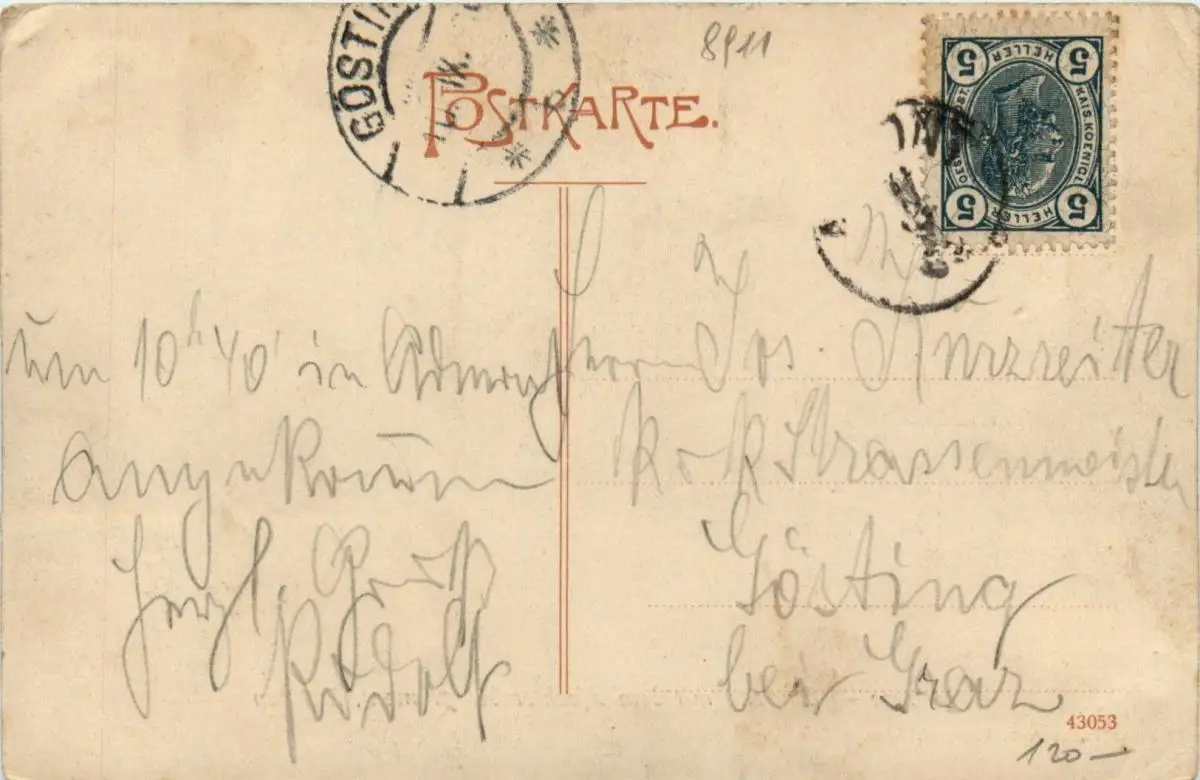 GÖSTIN
8911
POSTKARTE.
5 HELLER 5
KAIS. KOENIGL.
OESTERR. POST
5 HELLER 5
um 10h 40' in Admont
angekomm̄en
Herzl. Gruß
Rudolf
Herrn Jos. Kurzreitter
k. k. Strassenmeister
Gösting
bei Graz
43053
120—